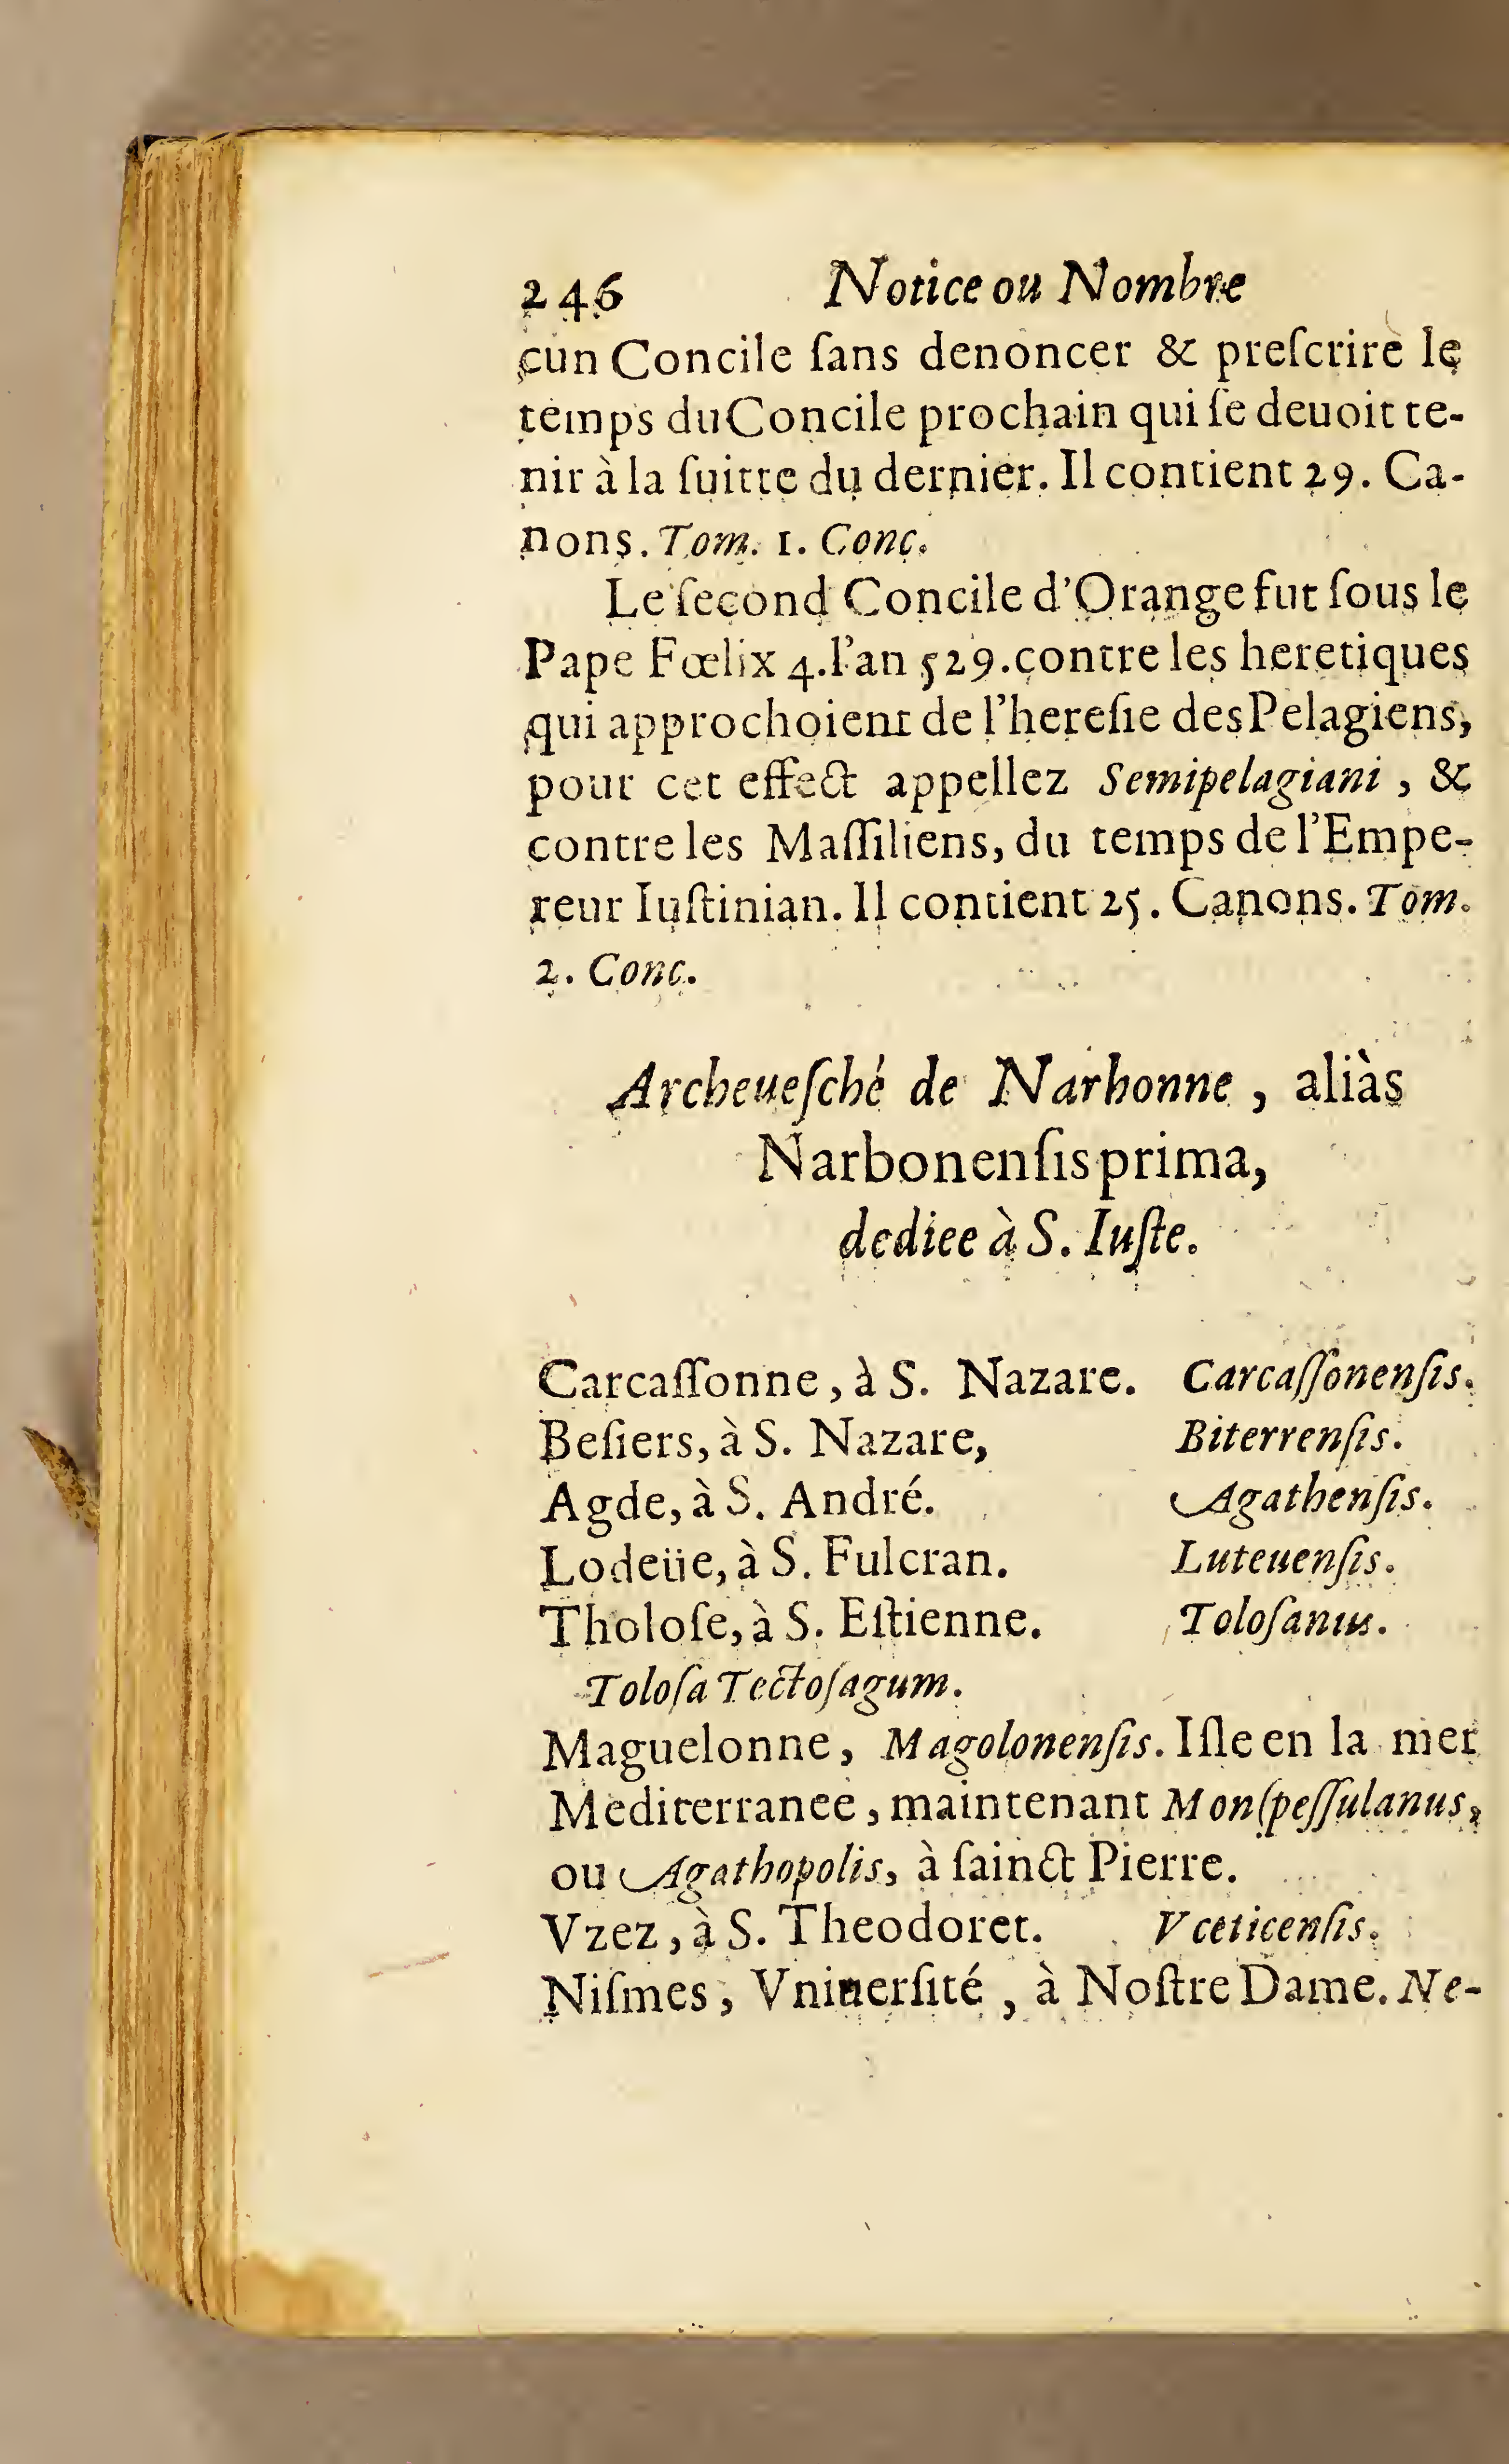 246 Notice ou Nombre
cun Concile ſans denoncer & preſcrire le
temps du Concile prochain qui ſe deuoit te-
nir à la ſuitte du dernier. Il contient 29. Ca-
nons. Tom. 1. Conc.
Le ſecond Concile d'Orange fut ſous le
Pape Fœlix 4. l'an 529. contre les heretiques
qui approchoient de l'hereſie des Pelagiens,
pour cet effect appellez Semipelagiani, &
contre les Maſſiliens, du temps de l'Empe-
reur Iuſtinian. Il contient 25. Canons. Tom.
2. Conc.
Archeueſché de Narbonne, aliàs
Narbonenſis prima,
dediee à S. Iuſte.
Carcaſſonne, à S. Nazare. Carcaſſonenſis.
Beſiers, à S. Nazare, Biterrenſis.
Agde, à S. André. Agathenſis.
Lodeüe, à S. Fulcran. Luteuenſis.
Tholoſe, à S. Eſtienne. Toloſanus.
Toloſa Tectoſagum.
Maguelonne, Magolonenſis. Iſle en la mer
Mediterranee, maintenant Monſpeſſulanus,
ou Agathopolis, à ſainct Pierre.
Vzez, à S. Theodoret. Vceticenſis.
Niſmes, Vniuerſité, à Noſtre Dame. Ne-